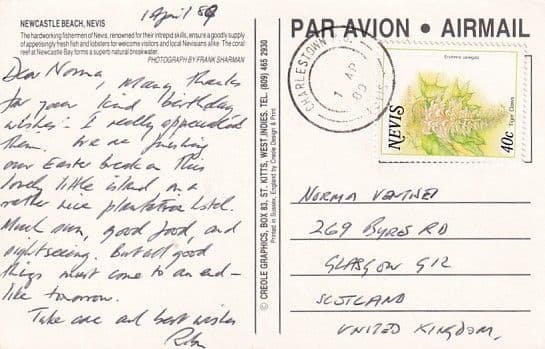 1 April 89
NEWCASTLE BEACH, NEVIS
The hardworking fishermen of Nevis, renowned for their intrepid skills, ensure a goodly supply
of appealingly fresh fish and lobsters for welcome visitors and local Nevisians alike. The coral
reef at Newcastle Bay forms a superb natural breakwater.
PHOTOGRAPH BY FRANK SHARMAN
Dear Norma,
Many thanks
for your kind birthday
wishes - I really appreciated
them. We are finishing
our Easter break on this
lovely little island in a
rather nice plantation hotel.
Much sun, good food, and
sightseeing. But all good
things must come to an end -
like tomorrow.
Take care and best wishes
© CREOLE GRAPHICS, BOX 83, ST. KITTS, WEST INDIES. TEL. (809) 465 2930
Printed in Sussex, England by Creole Design & Print
PAR AVION • AIRMAIL
CHARLESTOWN
1 AP
89
NEVIS
40c
Tiger Claws
NORMA
269 BYRES RD
GLASGOW G12
SCOTLAND
UNITED KINGDOM,